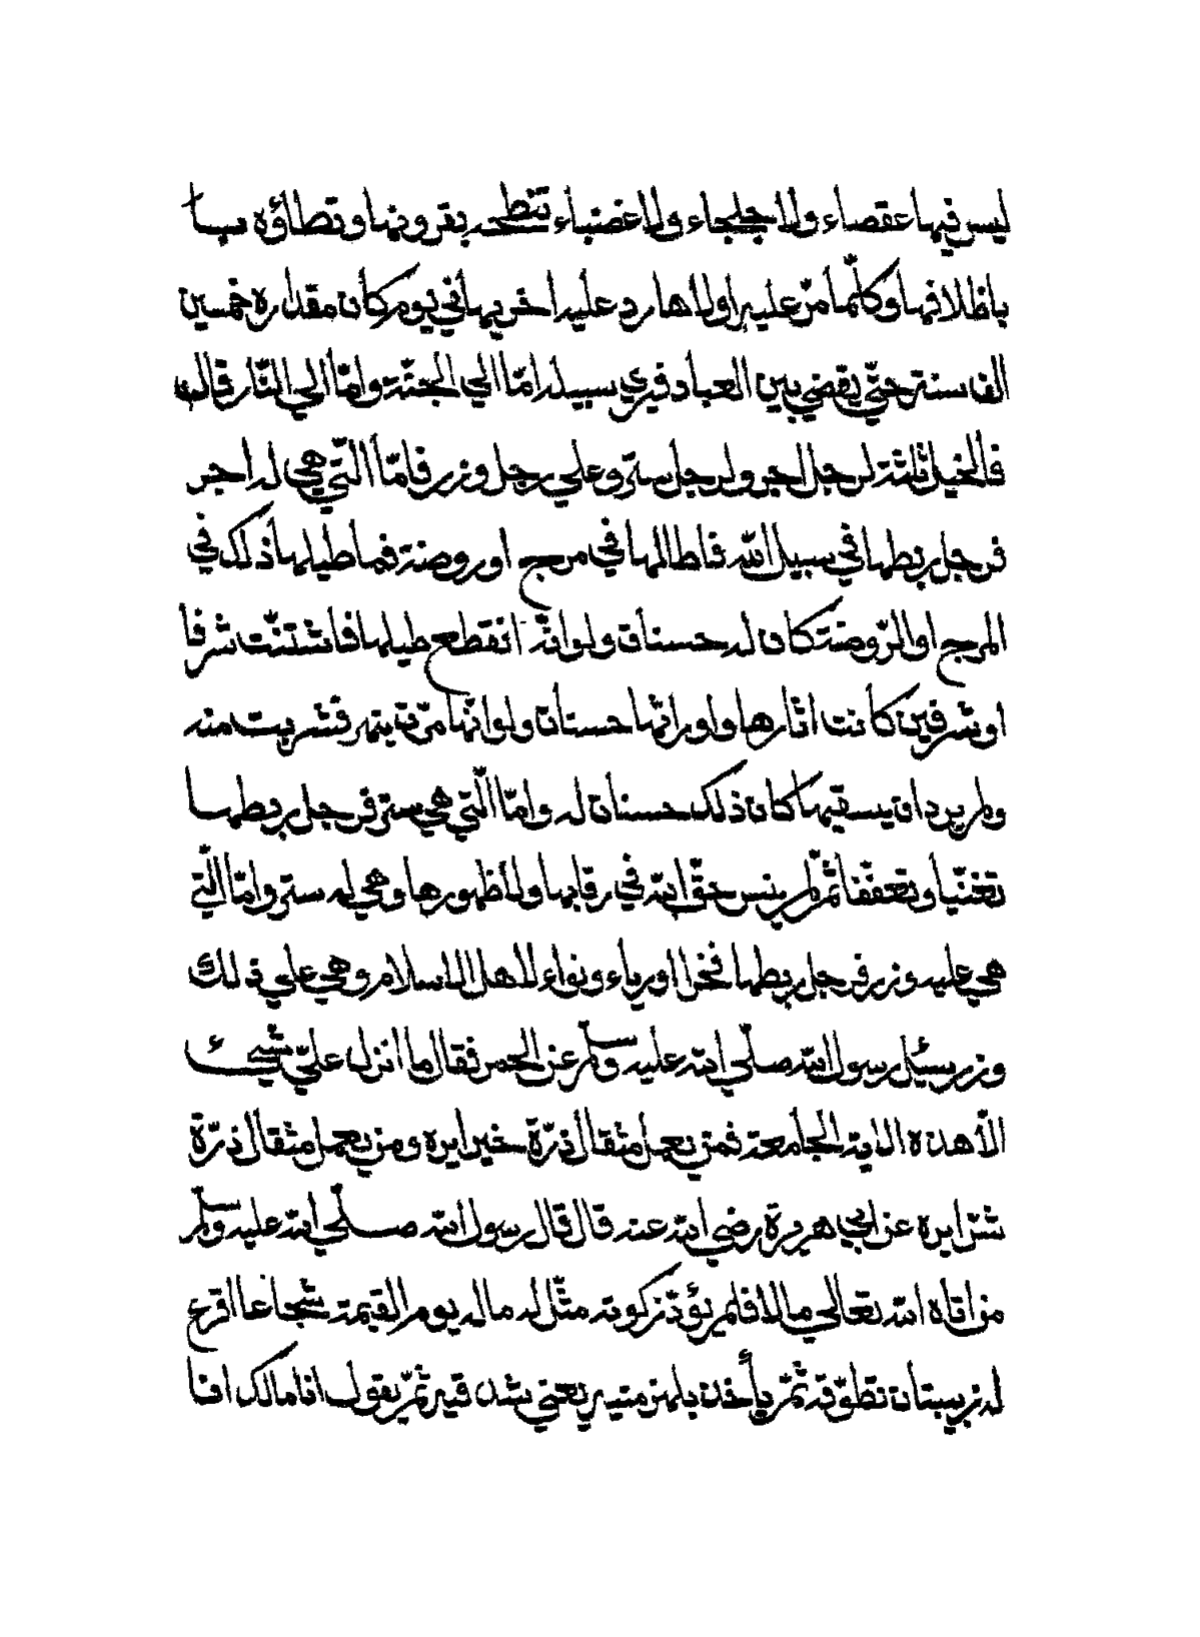 ليس فيها عقصاء ولا جلجاء ولا غضباء تنطحه بقرونها وتطاؤه
باظلافها وكلّما مرّ عليه اولاها رد عليه اخريها في يوم كان مقداره خمسين
الف سنة حتّي يقضي بين العباد فيري سبيله امّا الي الجنّة وامّا الي النّار قال
فالخيل ثلثة لرجل اجر ولرجل ستر وعلي رجل وزر فامّا الّتي هي له اجر
فرجل ربطها في سبيل اللّه فاطالها في مرج او روضة فما طيلها ذلك في
المرج او الرّوضة كان له حسنات ولو انّه انقطع طيلها فاستنّت شرفا
او شرفين كانت اثارها واوراثها حسنات ولو انّها مرّت بنهر فشربت منه
ولم يرد ان يسقيها كان ذلك حسنات له وامّا الّتي هي ستر فرجل ربطها
تغنّيا وتعفّفا ثمّ لم ينس حقّ اللّه في رقابها ولا ظهورها وهي له ستر وامّا الّتي
هي عليه وزر فرجل ربطها فخرا او رياء ونواء لاهل الاسلام وهي علي ذلك
وزر سئل رسول اللّه صلّي اللّه عليه وسلّم عن الحمر فقال ما انزل عليّ شيئ
الّا هذه الاية الجامعة فمن يعمل مثقال ذرّة خيرا يره ومن يعمل مثقال ذرّة
شرّا يره عن ابي هريرة رضي اللّه عنه قال قال رسول اللّه صلّي اللّه عليه وسلّم
من اتاه اللّه تعالي مالا فلم يؤدّ زكوته مثّل له ماله يوم القيمة شجاعا اقرع
له زبيبتان تطوّقه ثمّ يأخذ بلهزمتيه يعني شدقيه ثمّ يقول انا مالك انا